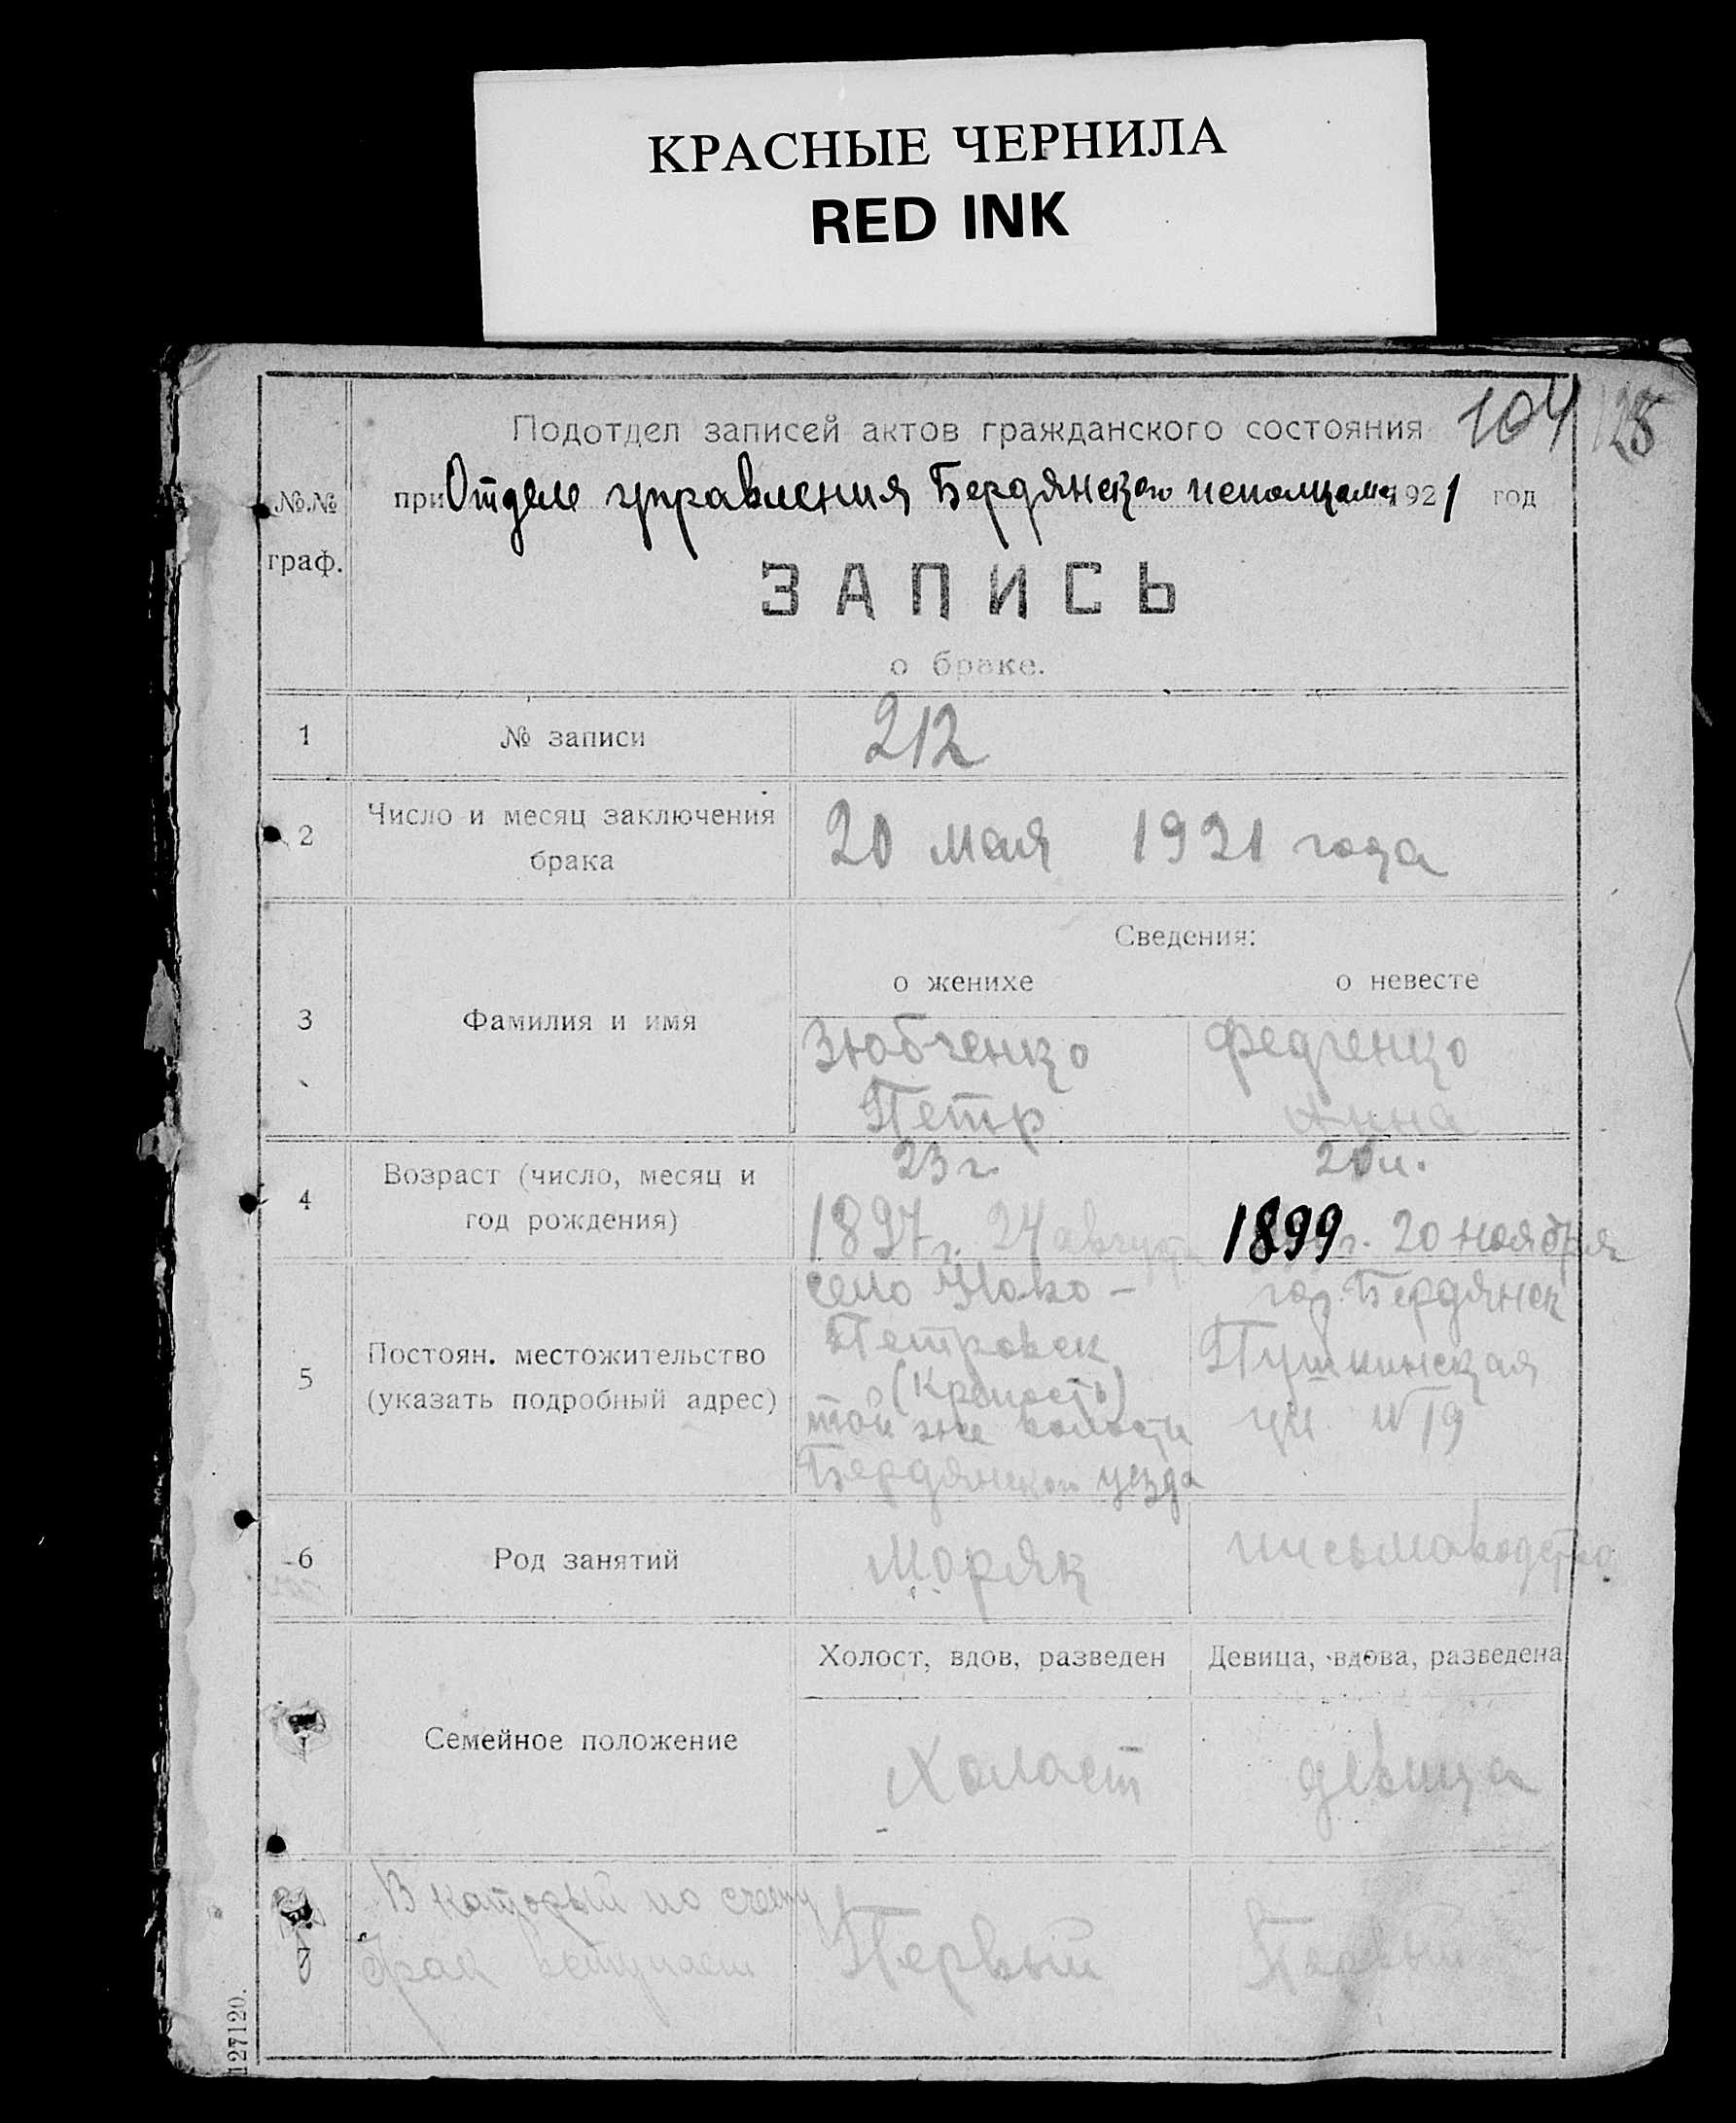 КРАСНЫЕ ЧЕРНИЛА
RED INK
104 125
Подотдел записей актов гражданского состояния
№.№ граф.
при Отделе управления Бердянского исполкома 1921 год
ЗАПИСЬ
о браке.
1 № записи 212
2 Число и месяц заключения брака 20 мая 1921 года
Сведения:
о женихе о невесте
3 Фамилия и имя
Зюбченко Федченко
Петр Анна
4 Возраст (число, месяц и год рождения)
23 г. 20 л.
1897 г. 24 августа 1899 г. 20 ноября
5 Постоян. местожительство (указать подробный адрес)
село Ново- гор. Бердянск
Петровск Пушкинская
(Крепость)
той же волости ул. №19
Бердянского уезда
6 Род занятий Моряк письмоводство
Холост, вдов, разведен Девица, вдова, разведена
Семейное положение
Холост девица
В который по счету
брак вступает Первый Первый
127120.